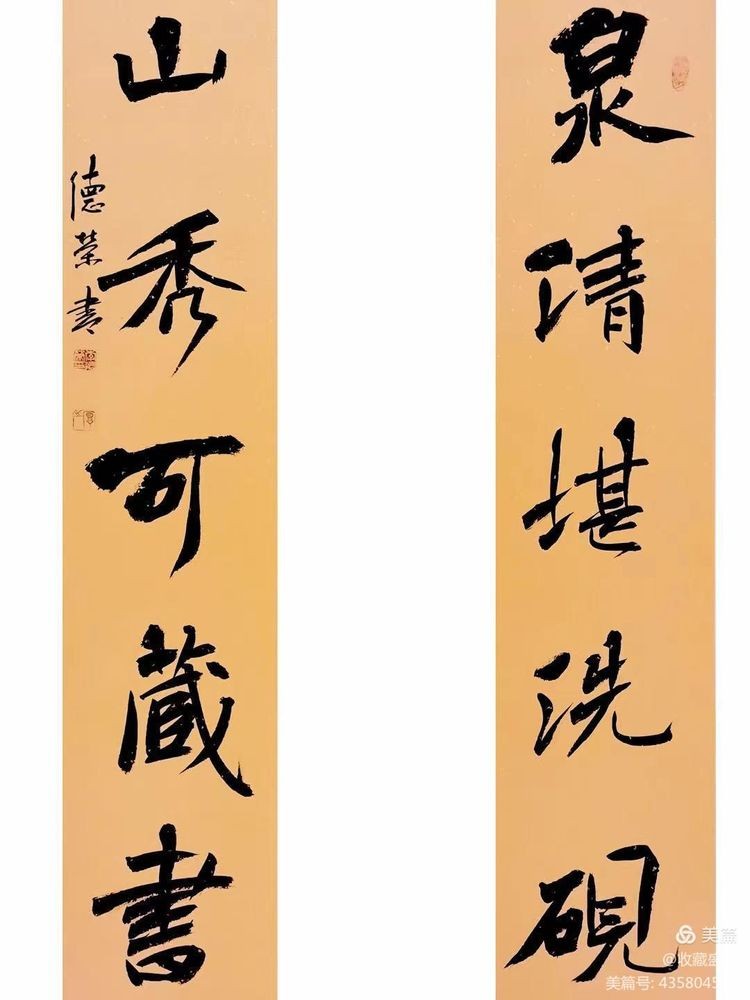 泉清堪洗硯
山秀可藏書
德荣书
美篇
@收藏盛
美篇号: 4358045